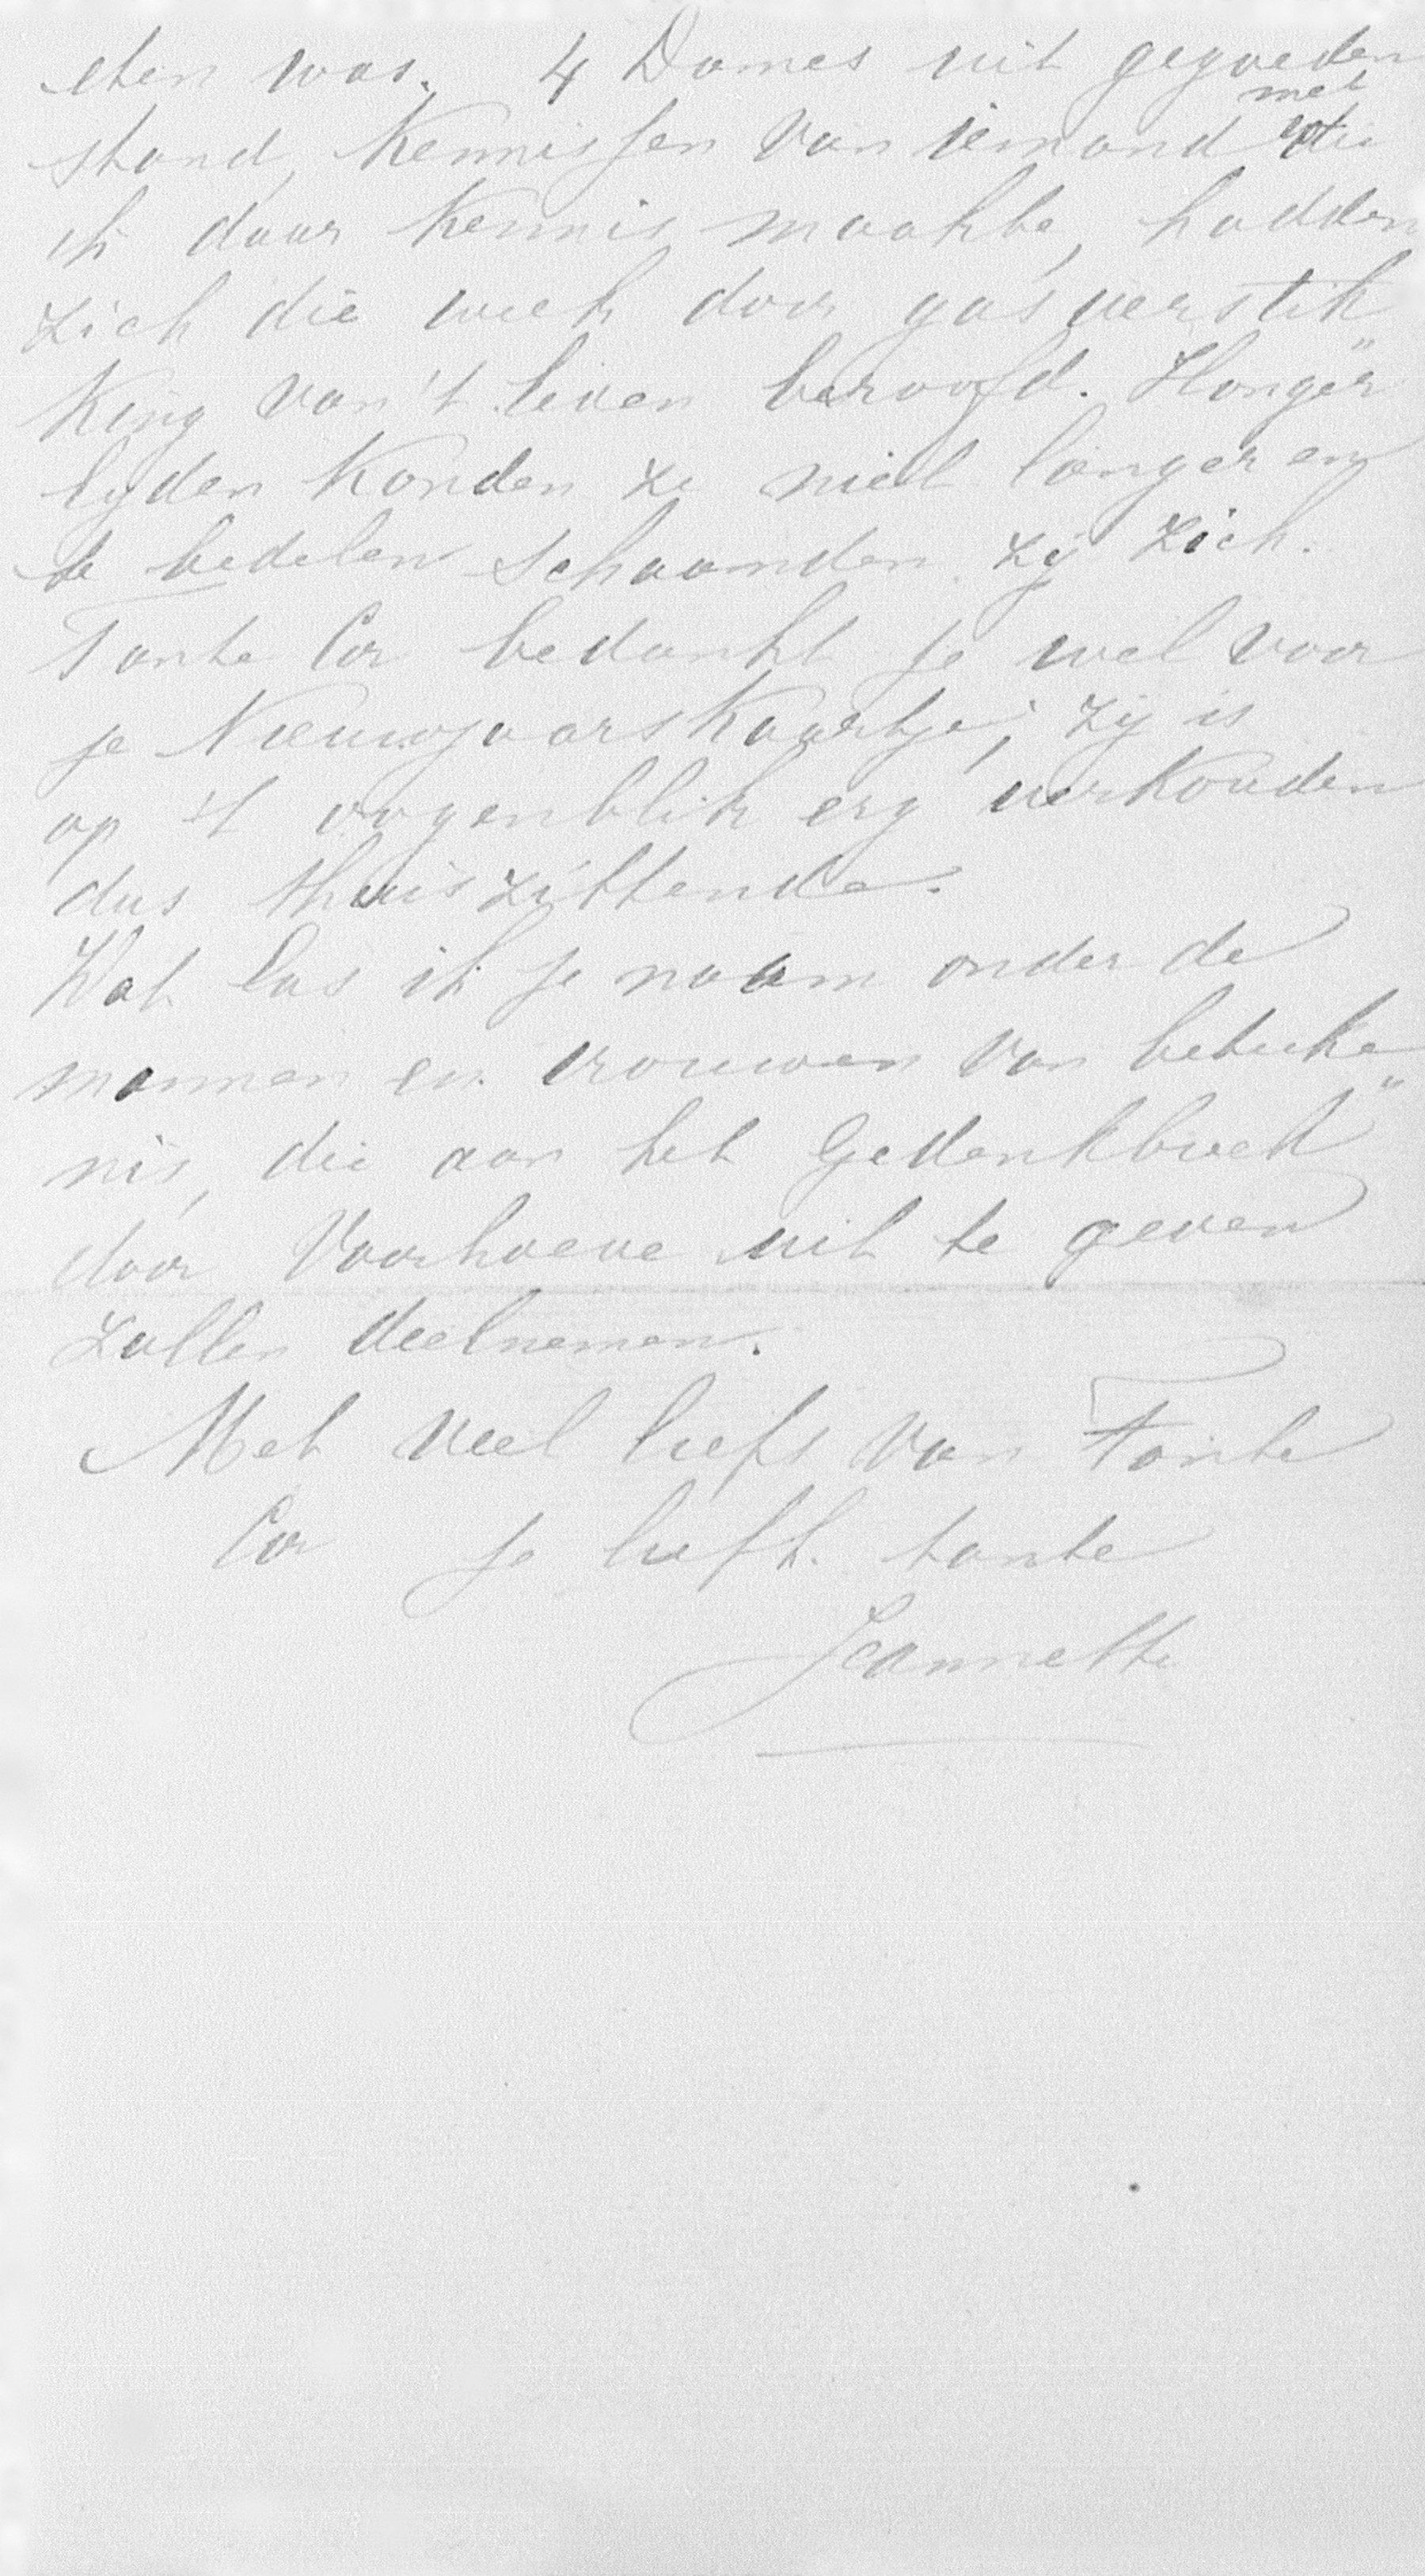 eten was. 4 Dames uit gegoeden
stand, kennissen van iemand met wie
ik daar kennis maakte, hadden
zich die week door gasverstik"
king van 't leven beroofd. Honger"
lyden konden ze niet langer en
te bedelen schaamden zij zich.
Tante Cor bedankt je wel voor
je Nieuwjaarskaartje; zij is
op 't oogenblik erg verkouden
dus thuiszittende.
Wat las ik je naam onder de
mannen en vrouwen van beteeke"
nis, die aan het Gedenkboek
door Voorhoeve uit te geven
zullen deelnemen.
Met veel liefs van Tante
Cor je liefh. tante
Jeannette